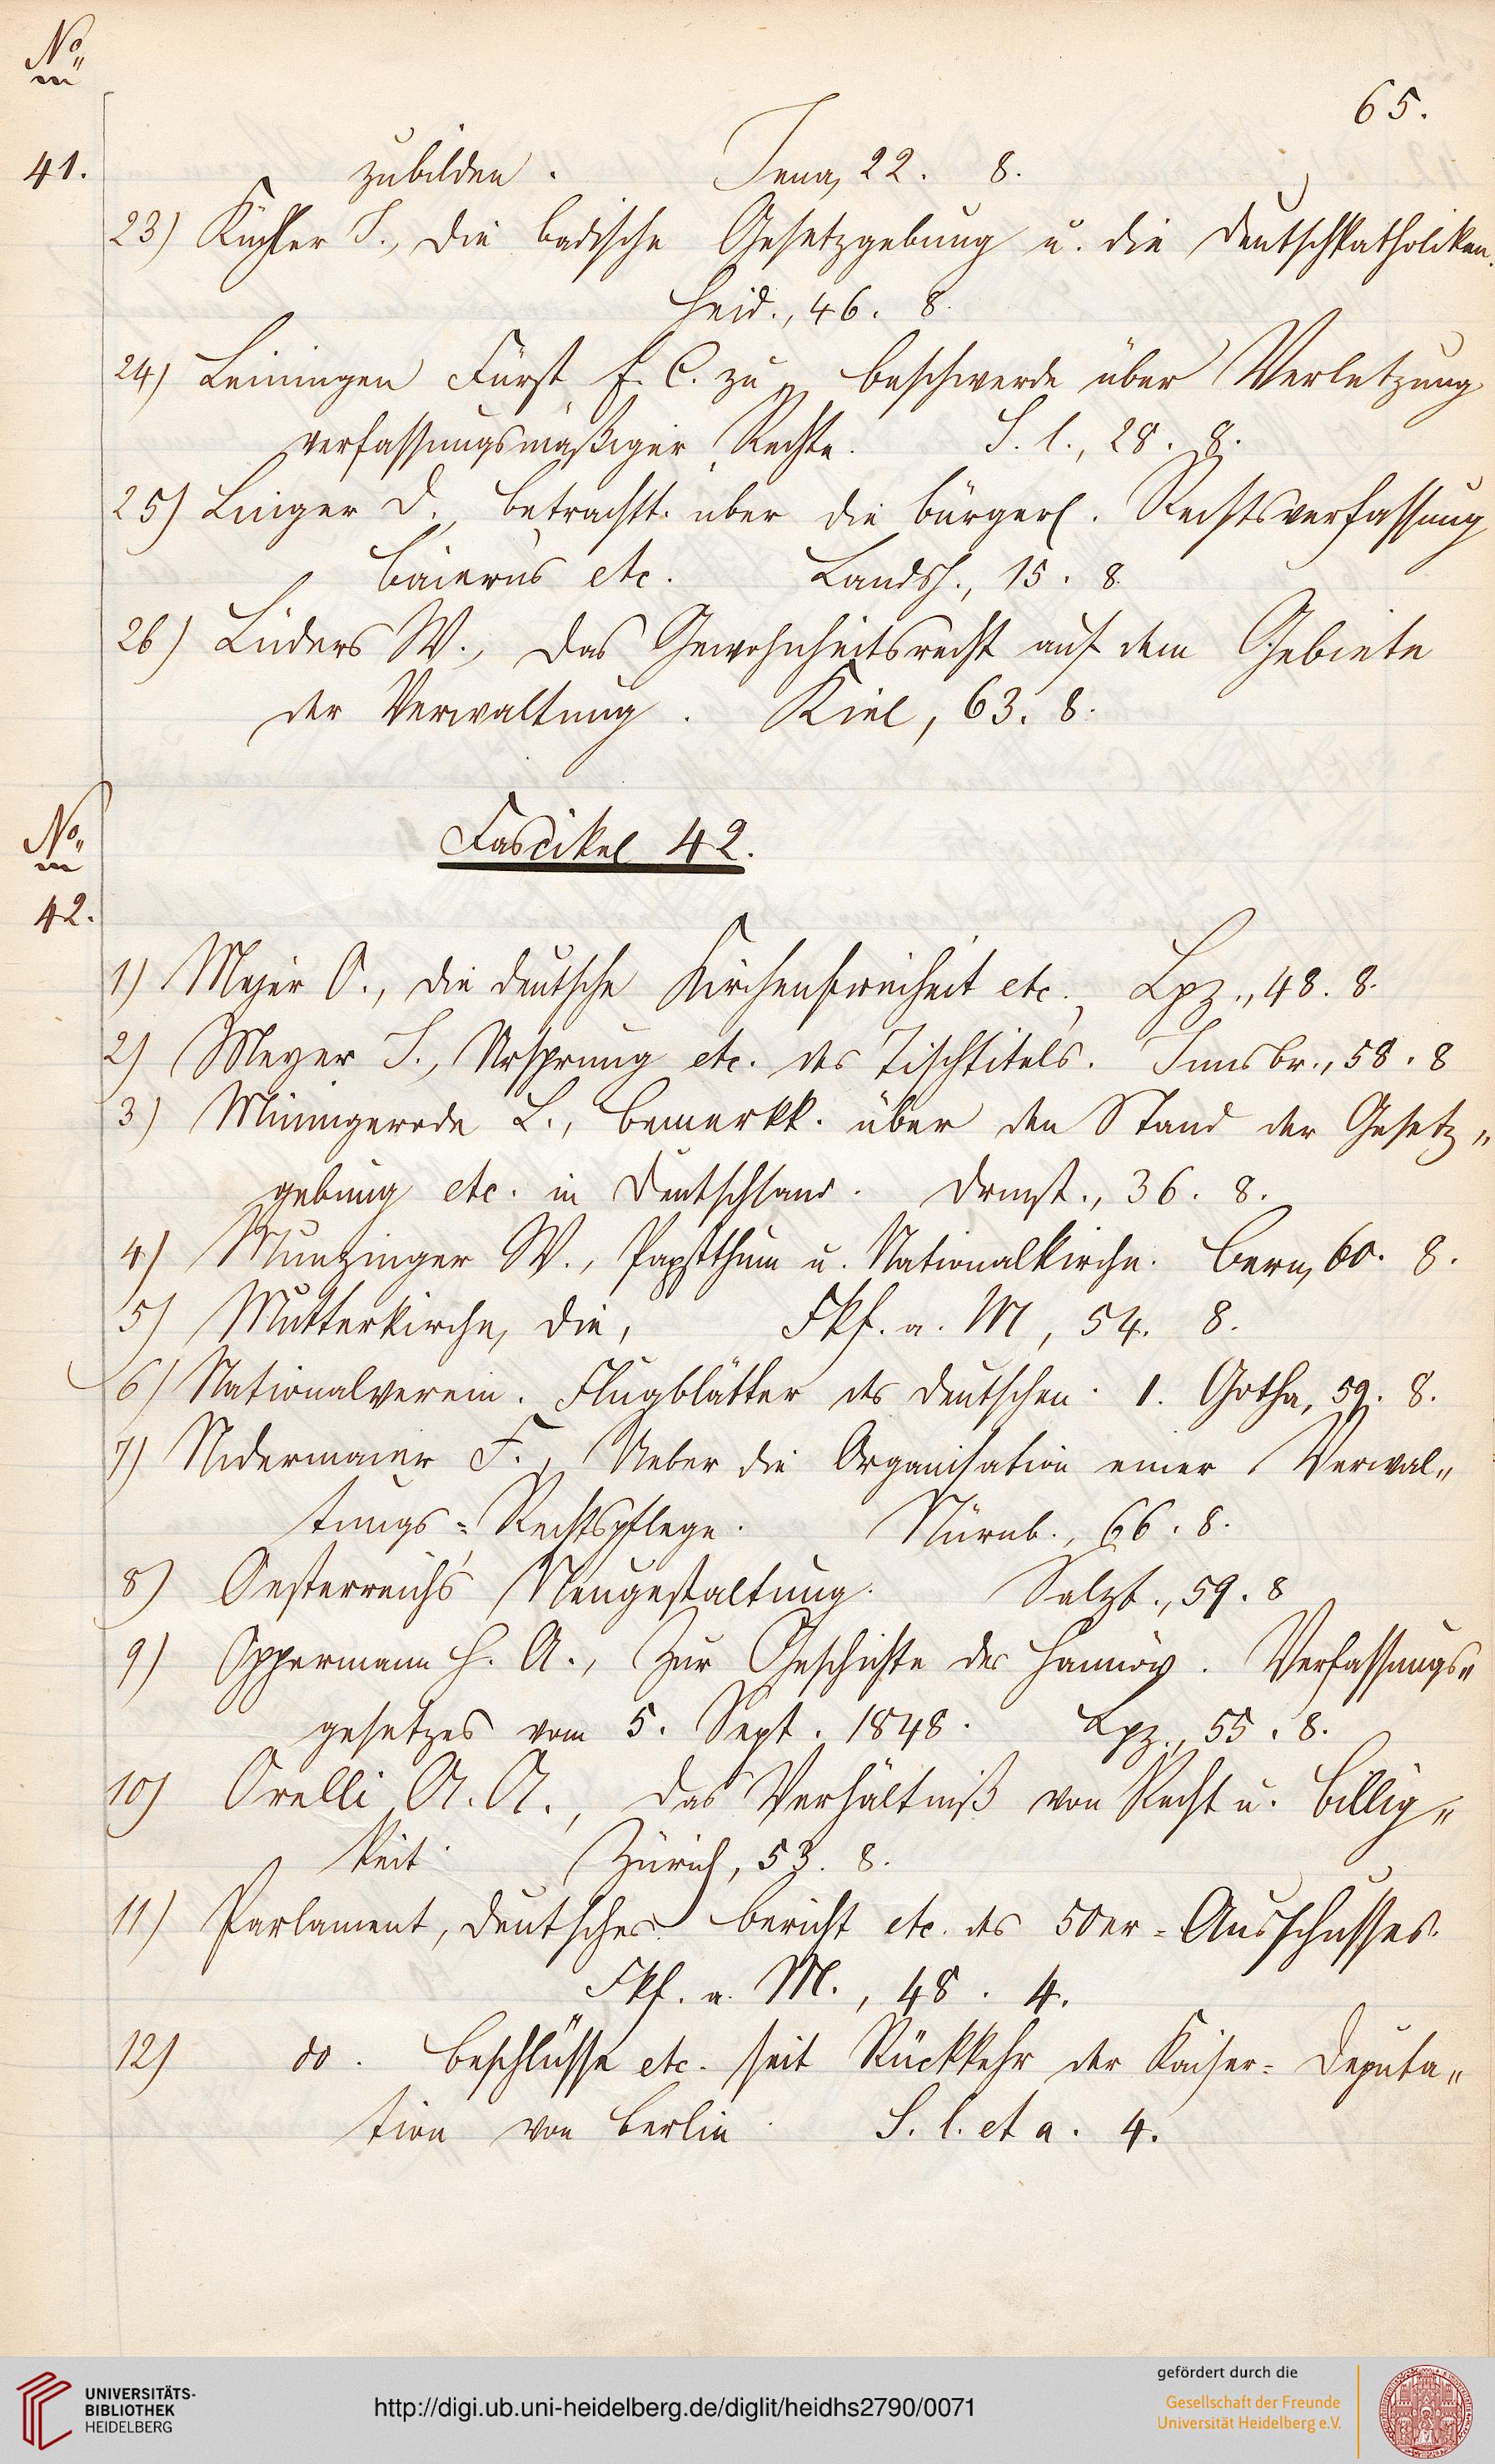 No
65.
41.
zubilden. Jena, 22. 8.
23) Küchler S., Die badische Gesetzgebung u. die Deutschkatholiken.
Heid., 46. 8.
24) Leiningen Fürst E. C. zu, Beschwerde über Verletzung
verfassungsmäßiger Rechte. S. l., 28. 8.
25) Linger D., Betrachtt. über die bürgerl. Rechtsverfassung
Baierns etc. Landsh., 15. 8.
26) Lüders W., Das Gewohnheitsrecht auf dem Gebiete
der Verwaltung. Kiel, 63. 8.
No
Fascikel 42.
42.
1) Mejer O., die deutsche Kirchenfreiheit etc., Lpz., 48. 8.
2) Meyer S., Ursprung etc. des Tischtitels. Innsbr., 58. 8
3) Minnigerode L., Bemerkk. über den Stand der Gesetz„
gebung etc. in Deutschland. Drmst., 36. 8.
4) Munzinger W., Papstthum u. Nationalkirche. Bern, 60. 8.
5) Mutterkirche, die, Fkf. a. M, 54. 8.
6) Nationalverein. Flugblätter des deutschen. 1. Gotha, 59. 8.
7) Nidermaier F., Ueber die Organisation einer Verwal„
tungs=Rechtspflege. Nürnb., 66. 8.
8) Oesterreich's Neugestaltung. Salzb., 59. 8
9) Oppermann H. A., Zur Geschichte des Hannöv. Verfassungs„
gesetzes vom 5. Sept. 1848. Lpz., 55. 8.
10) Orelli A. A., Das Verhältniß von Recht u. Billig„
keit. Zürich, 53. 8.
11) Parlament, deutsches. Bericht etc. des 50er=Ausschusses.
Fkf. a. M., 48. 4.
12) do. Beschlüsse etc. seit Rückkehr der Kaiser=Deputa„
tion von Berlin. S. l. et a. 4.
UNIVERSITÄTS-
BIBLIOTHEK
HEIDELBERG
http://digi.ub.uni-heidelberg.de/diglit/heidhs2790/0071
gefördert durch die
Gesellschaft der Freunde
Universität Heidelberg e.V.